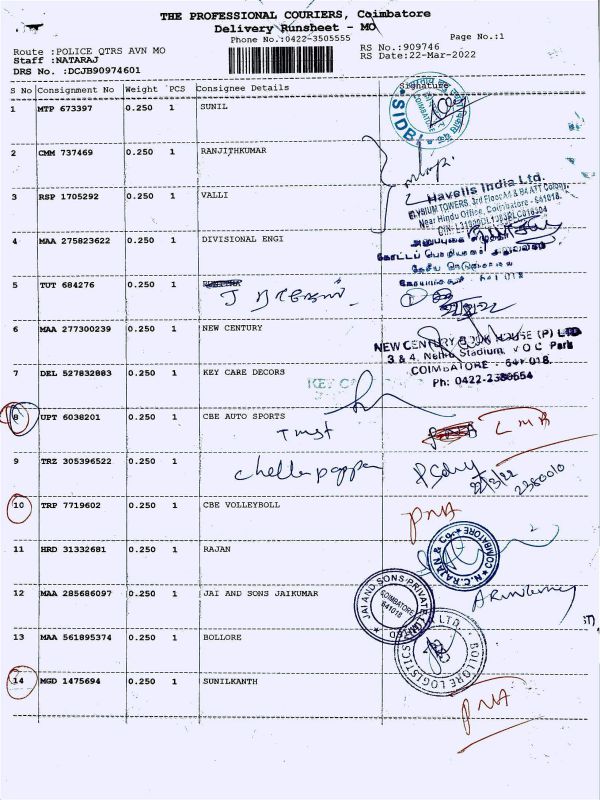 THE PROFESSIONAL COURIERS, Coimbatore
Delivery Runsheet - MO
Phone No.:0422-3505555
Page No.:1
Route :POLICE QTRS AVN MO
RS No.:909746
Staff :NATARAJ
RS Date:22-Mar-2022
DRS No. :DCJB90974601
S No Consignment No Weight PCS Consignee Details Signature
1 MTP 673397 0.250 1 SUNIL
SIDBI
COIMBATORE
2 CMM 737469 0.250 1 RANJITHKUMAR
3 RSP 1705292 0.250 1 VALLI
Havells India Ltd.
ELYSIUM TOWERS, 3rd Floor A4 & B4 ATT Colony,
Near Hindu Office, Coimbatore - 641018.
4 MAA 275823622 0.250 1 DIVISIONAL ENGI
5 TUT 684276 0.250 1
22/3/22
6 MAA 277300239 0.250 1 NEW CENTURY
NEW CENTURY BOOK HOUSE (P) LTD
3 & 4, Nehru Stadium, V O C Park
COIMBATORE - 641 018.
Ph: 0422-2380554
7 DEL 527832883 0.250 1 KEY CARE DECORS
8 UPT 6038201 0.250 1 CBE AUTO SPORTS
Trust
9 TRZ 305396522 0.250 1
Chellapappa
22/3/22
10 TRP 7719602 0.250 1 CBE VOLLEYBOLL
PNA
11 HRD 31332681 0.250 1 RAJAN
N.C.RAJAN & CO. COIMBATORE
12 MAA 285686097 0.250 1 JAI AND SONS JAIKUMAR
JAI AND SONS PRIVATE LIMITED
COIMBATORE
641018
13 MAA 561895374 0.250 1 BOLLORE
BOLLORE LOGISTICS LTD.
14 MGD 1475694 0.250 1 SUNILKANTH
PNA